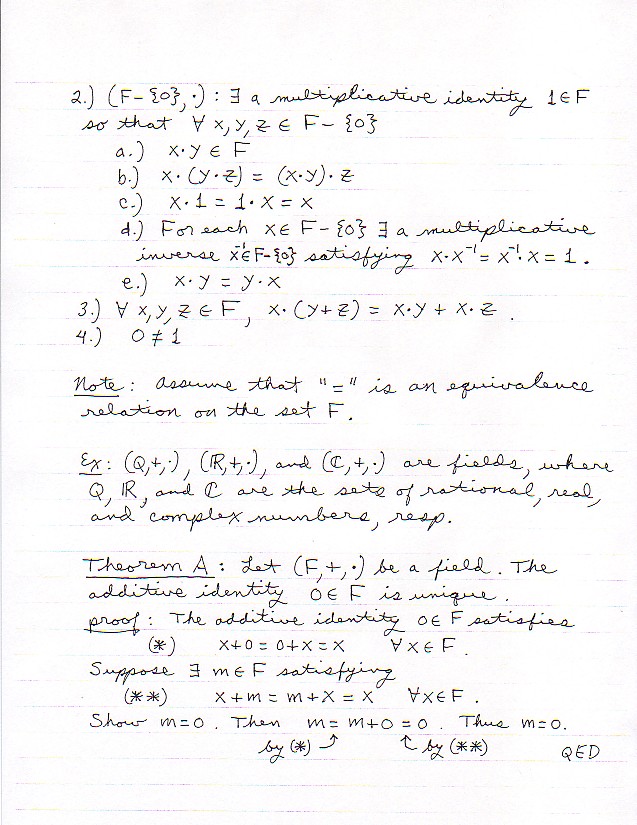 2.) (F-{0}, ·) : ∃ a multiplicative identity 1∈F
so that ∀ x, y, z ∈ F-{0}
a.) x·y ∈ F
b.) x·(y·z) = (x·y)·z
c.) x·1 = 1·x = x
d.) For each x∈F-{0} ∃ a multiplicative
inverse x⁻¹∈F-{0} satisfying x·x⁻¹ = x⁻¹·x = 1.
e.) x·y = y·x
3.) ∀ x, y, z ∈ F, x·(y+z) = x·y + x·z.
4.) 0 ≠ 1
Note: Assume that "=" is an equivalence
relation on the set F.
Ex: (Q,+,·), (ℝ,+,·), and (ℂ,+,·) are fields, where
Q, ℝ, and ℂ are the sets of rational, real,
and complex numbers, resp.
Theorem A: Let (F,+,·) be a field. The
additive identity 0∈F is unique.
proof: The additive identity 0∈F satisfies
(*) x+0 = 0+x = x ∀x∈F.
Suppose ∃ m∈F satisfying
(**) x+m = m+x = x ∀x∈F.
Show m=0. Then m = m+0 = 0. Thus m=0.
by (*) ↑ ↑ by (**) QED